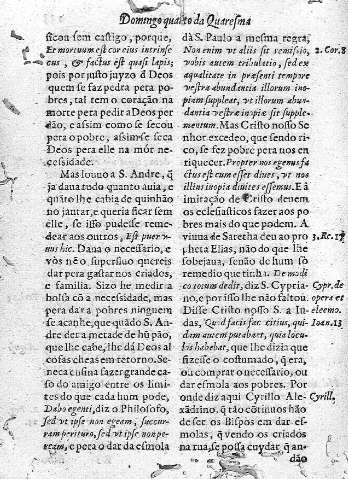 Domingo quarto da Quaresma
ficou sem castigo, porque,
Et mortuum est cor eius intrinse
cus, & factus est quasi lapis;
pois por justo juyzo d Deos
quem se faz pedra pera po-
bres, tal tem o coração na
morte pera pedir a Deos per
dão, e assim como se secou
pera o pobre, assim se seca
Deos pera elle na mór ne-
cessidade.
Mas louuo a S. Andre, q̃
ja daua tudo quanto auia, e
quãto lhe cabia de quinhão
no jantar, e queria ficar sem
elle, se isso pudesse reme-
dear aos outros, Est puer v-
nus hic. Daua o necessario, e
vós nẽo superfluo quereis
dar pera gastar nos criados,
e familia. Sizo lhe medir a
bolsa cõ a necessidade, mas
pera dar a pobres ninguem
se acanhe, que quãdo S. An-
dre der a metade de hũ pão,
que lhe cabe, lhe dá Deos al
cofas cheas em retorno. Se-
neca ensina fazer grande ca-
so do amigo entre os limi-
tes do que cada hum pode,
Dabo egenti, diz o Philosofo,
sed vt ipse non egeam, succur-
ram perituro, sed vt ipse non pe-
ream, e pera o dar da esmola
dà S. Paulo a mesma regra,
Non enim vt aliis sit remissio,
vobis autem tribulatio, sed ex
aequalitate in praesenti tempore
vestra abundantia illorum ino-
piam suppleat, vt illorum abun-
dantia vestrae inopiae sit supple-
mentum. Mas Cristo nosso Se
nhor excedeo, que sendo ri-
co, se fez pobre pera nos en-
riquecer. Propter nos egenus fa
ctus est cum esset diues, vt nos
illius inopia diuites essemus. E à
imitação de Cristo deuem
os eclesiasticos fazer aos po
bres mais do que podem. A
viuua de Sarepta deu ao pro
pheta Elias, não do que lhe
sobejaua, senão de hum só
remedio que tinha. De modi
co totum dedit, diz S. Cypria-
no, e por isso lhe não faltou.
Disse Cristo nosso S. a Iu-
das, Quod facis fac citius, qui-
dam autem putabant, quia locu-
los habebat, que lhe dizia que
fizesse o costumado, q̃ era,
ou comprar o necessario, ou
dar esmola aos pobres. Por
onde diz aqui Cyrillo Ale-
xãdrino, q̃ tão cõtinuos hão
de ser os Bispos em dar es-
molas, q̃ vendo os criados
na rua, se possa cuydar, q̃ an-
dão
2. Cor. 8
3. Re. 17
Cypr. de
opere et
eleemo.
Ioan. 13
Cyrill.